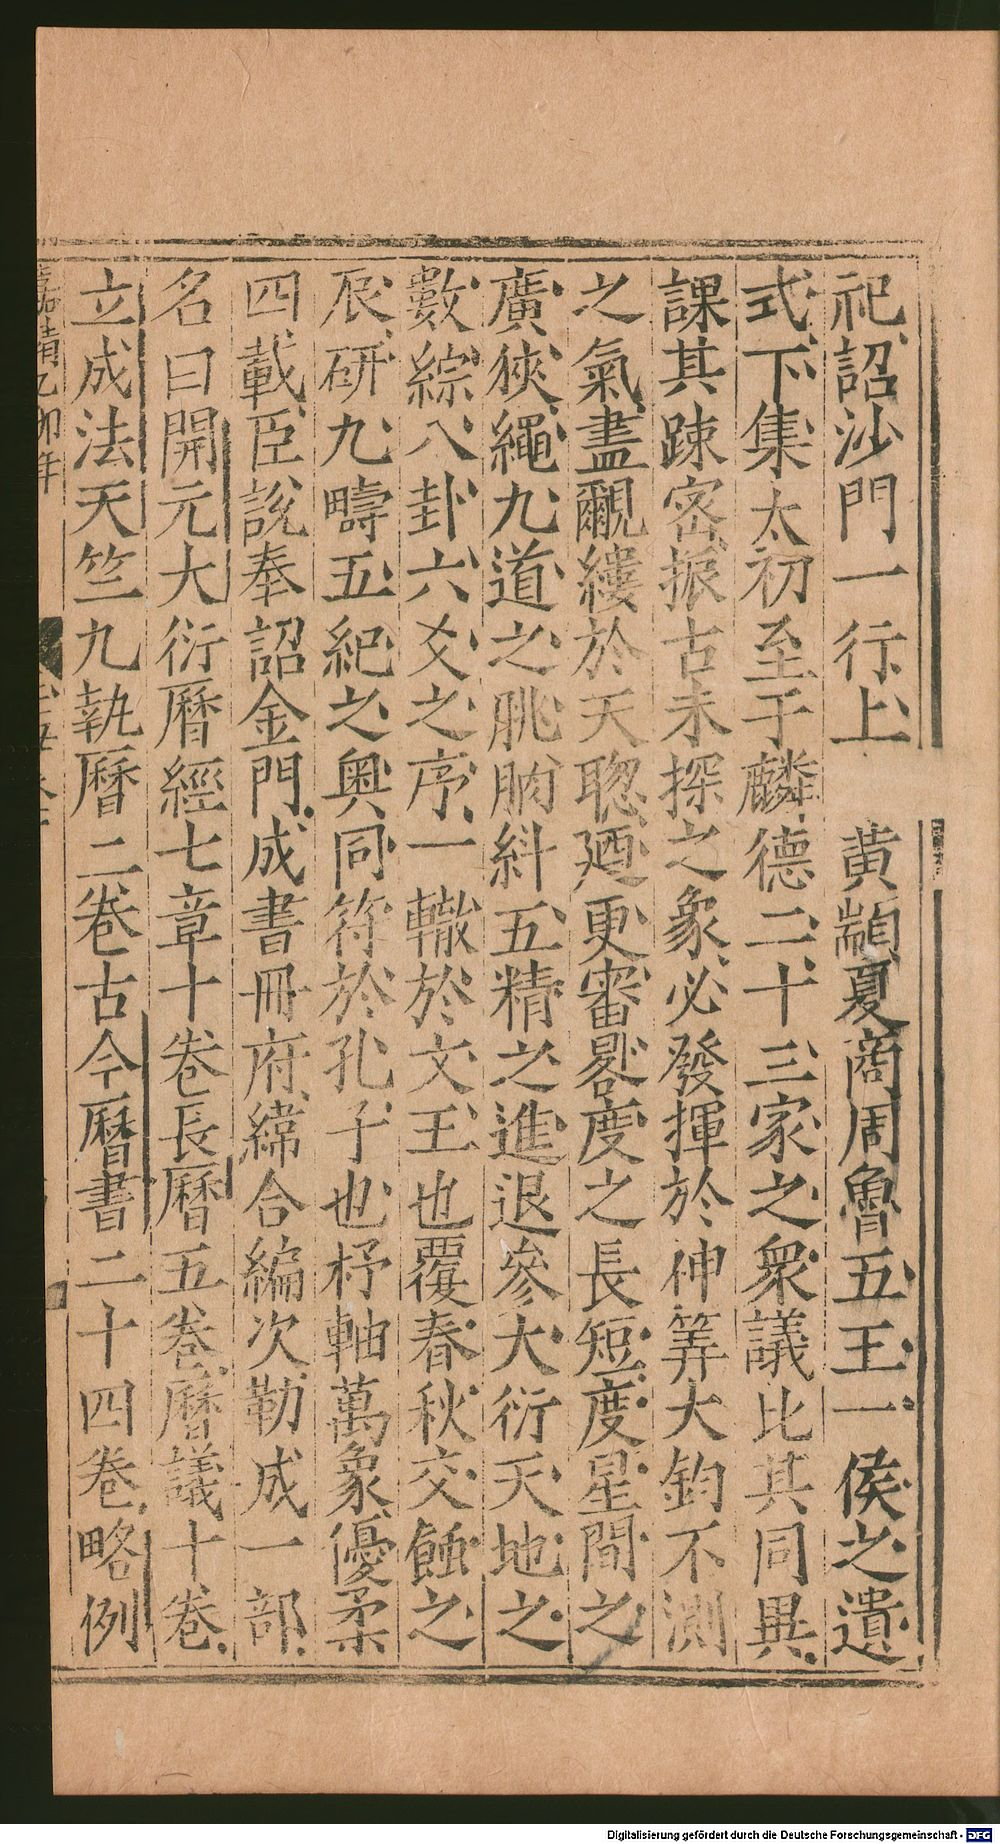 祀詔沙門一行上 黄顓夏商周魯五王一侯之遺
式下集太初至于麟德二十三家之衆議比其同異
課其踈密振古未探之象必發揮於神筭大鈞不測
之氣盡覼縷於天聦廼更審晷度之長短度星間之
廣狹繩九道之朓朒斜五精之進退參大衍天地之
數綜八卦六爻之序一轍於文王也覆春秋交蝕之
辰研九疇五紀之奥同符於孔子也杼軸萬象優柔
四載臣説奉詔金門成書冊府緯合編次勒成一部
名曰開元大衍曆經七章十卷長曆五卷曆議十卷
立成法天竺九執曆二卷古今曆書二十四卷略例
嘉靖乙卯年
Digitalisierung gefördert durch die Deutsche Forschungsgemeinschaft - DFG